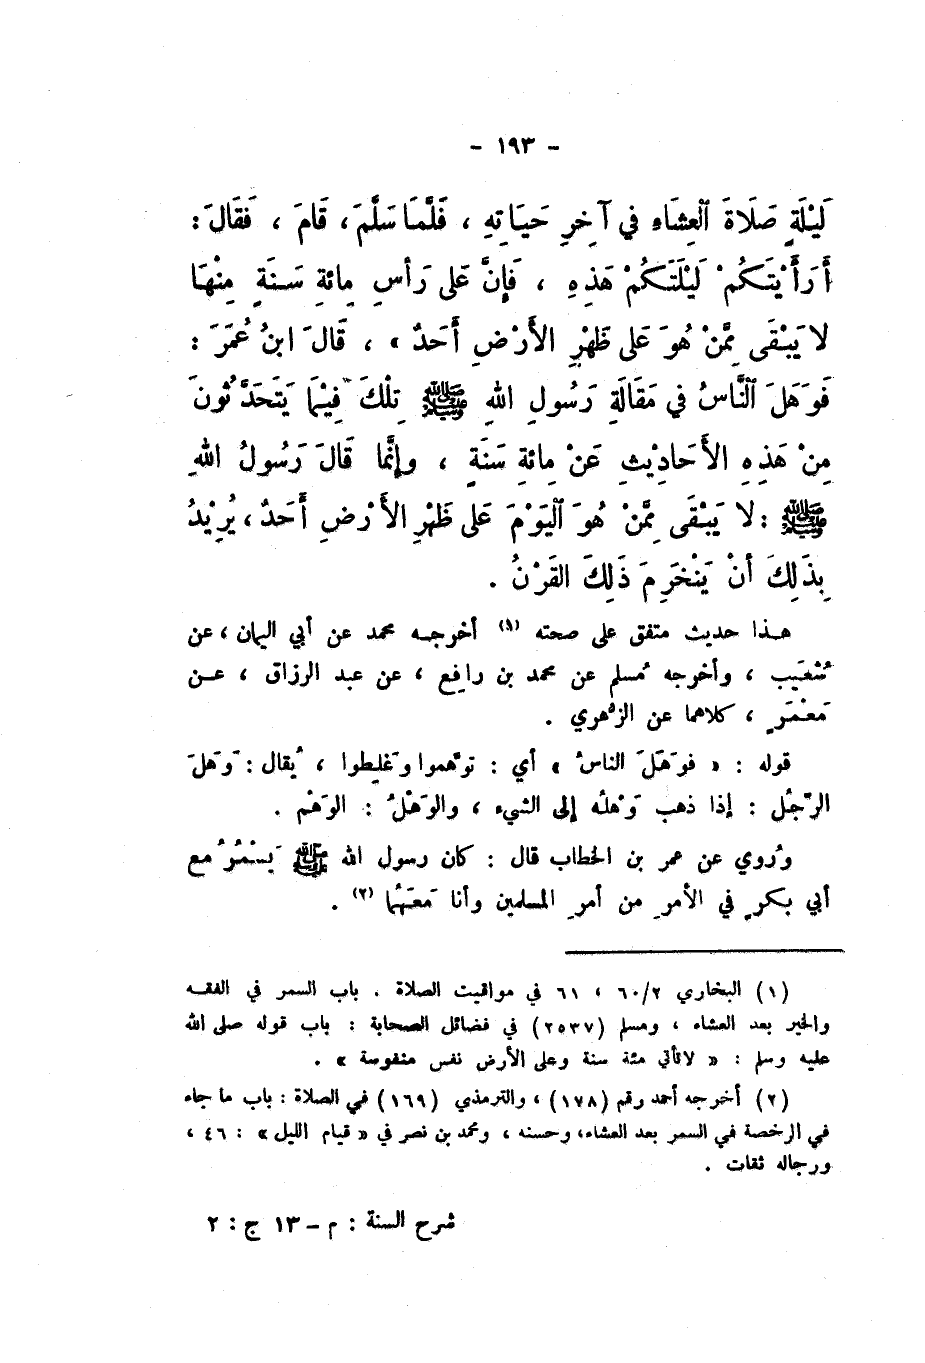 - ١٩٣ -
لَيْلَةٍ صَلَاةَ الْعِشَاءِ فِي آخِرِ حَيَاتِهِ ، فَلَمَّا سَلَّمَ ، قَامَ ، فَقَالَ :
أَرَأَيْتَكُمْ لَيْلَتَكُمْ هَذِهِ ، فَإِنَّ عَلَى رَأْسِ مِائَةِ سَنَةٍ مِنْهَا
لَا يَبْقَى مِمَّنْ هُوَ عَلَى ظَهْرِ الأَرْضِ أَحَدٌ » ، قَالَ ابنُ عُمَرَ :
فَوَهَلَ النَّاسُ فِي مَقَالَةِ رَسُولِ اللهِ ﷺ تِلْكَ فِيْمَا يَتَحَدَّثُونَ
مِنْ هَذِهِ الأَحَادِيْثِ عَنْ مِائَةِ سَنَةٍ ، وإنَّمَا قَالَ رَسُولُ اللهِ
ﷺ : لَا يَبْقَى مِمَّنْ هُوَ الْيَوْمَ عَلَى ظَهْرِ الأَرْضِ أَحَدٌ ، يُرِيْدُ
بِذَلِكَ أَنْ يَنْخَرِمَ ذَلِكَ القَرْنُ .
هـذا حديث متفق على صحته (١) أخرجـه محمد عن أبي اليمان ، عن
شُعَيب ، وأخرجه مُسلم عن محمد بن رافِع ، عن عبد الرزاق ، عـن
مَعْمَرٍ ، كلاهما عن الزهوي .
قوله : « فوَهَلَ الناسُ » أي : توَهموا وغَلِطوا ، يُقال : وَهَلَ
الرّجُل : إذا ذهب وَهْلُه إلى الشيء ، والوَهْلُ : الوَهْم .
ورُوي عن عمر بن الخطاب قال : كان رسول الله ﷺ يَسْمُرُ مع
أبي بكرٍ في الأمرِ من أمرِ المسلمين وأنا مَعَهُما (٢) .
(١) البخاري ٦٠/٢ ، ٦١ في مواقيت الصلاة . باب السمر في الفقـه
والخير بعد العشاء ، ومسلم (٢٥٣٧) في فضائل الصحابة : باب قوله صلى الله
عليه وسلم : « لاتأتي مئة سنة وعلى الأرض نفس منفوسة » .
(٢) أخرجه أحمد رقم (١٧٨) ، والترمذي (١٦٩) في الصلاة : باب ما جاء
في الرخصة في السمر بعد العشاء ، وحسنه ، ومحمد بن نصر في « قيام الليل » : ٤٦ ،
ورجاله ثقات .
شرح السنة : م – ١٣ ج : ٢